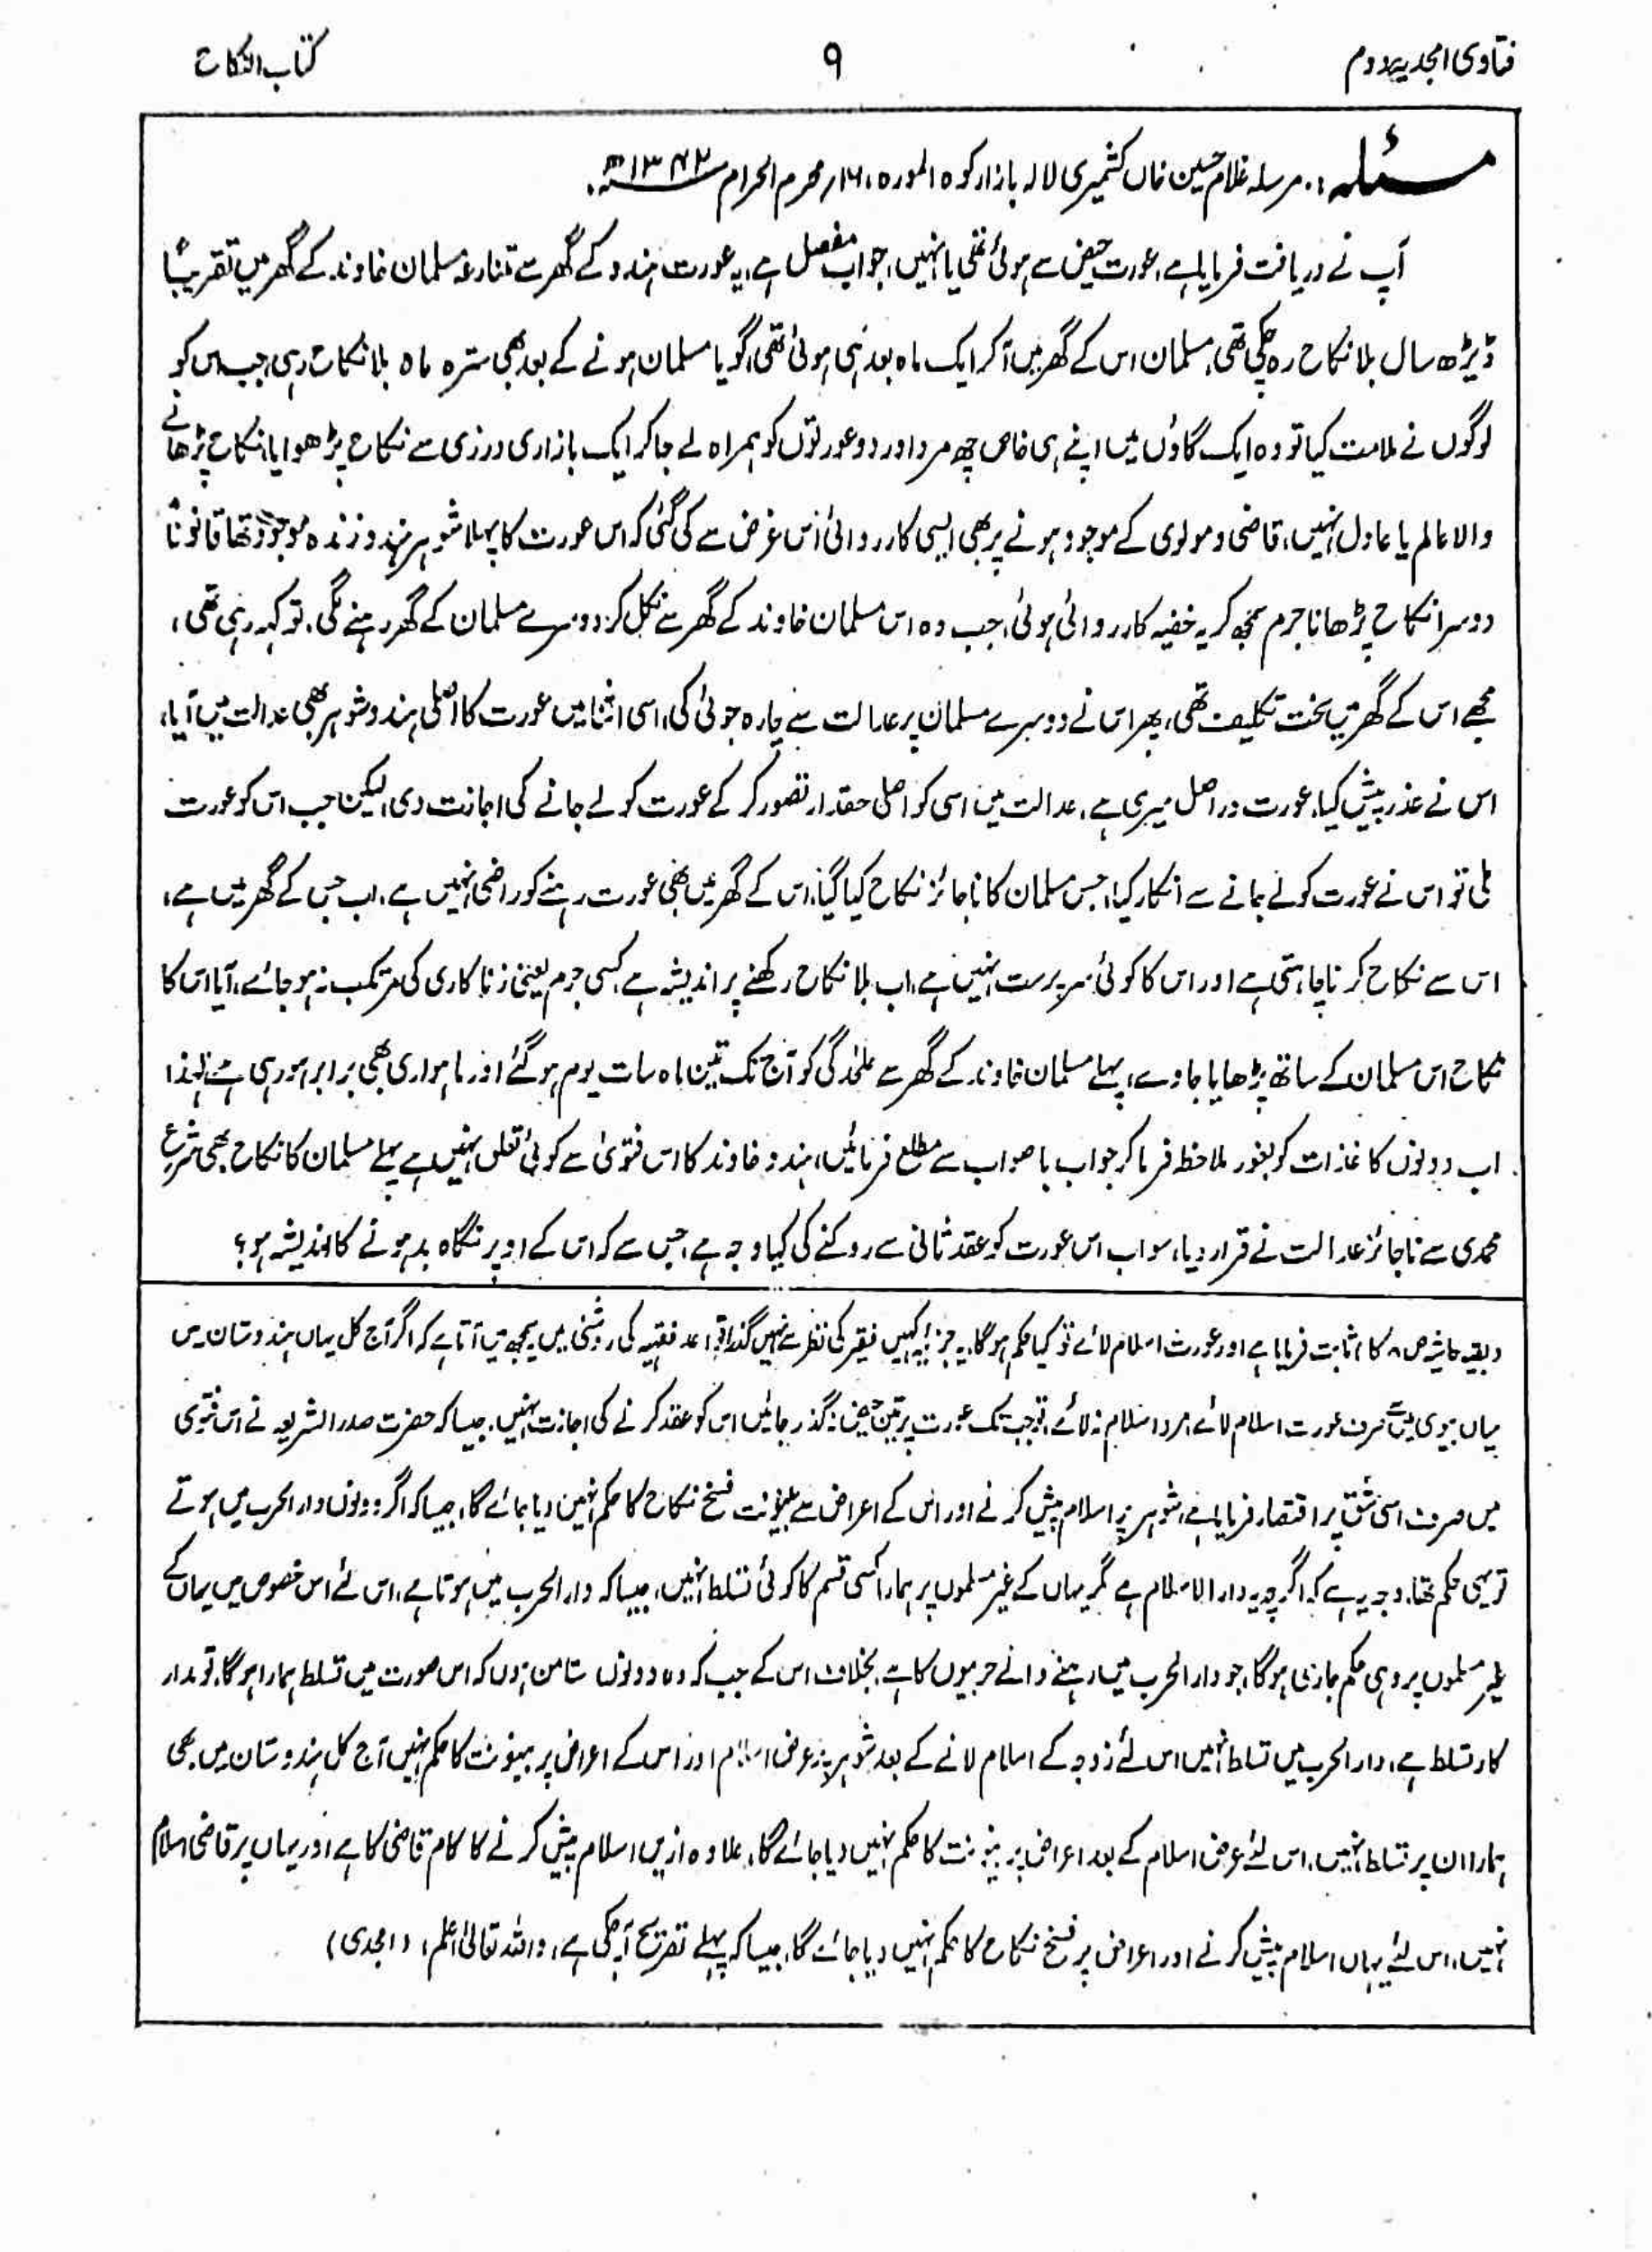 فتاوی امجدیہ دوم
۹
کتاب النکاح
مسئلہ:. مرسلہ غلام حسین خاں کشمیری لالہ بازار کوہ المورہ، ۱۶ر محرم الحرام ۱۳۴۲ھ.
آپ نے دریافت فرمایا ہے، عورت حیض سے ہوئی تھی یا نہیں، جواب مفصل ہے، یہ عورت ہندو کے گھر سے متنازعہ مسلمان خاوند کے گھر میں تقریباً
ڈیڑھ سال بلا نکاح رہ چکی تھی، مسلمان اس کے گھر میں آکر ایک ماہ بعد ہی ہوئی تھی، گویا مسلمان ہونے کے بعد بھی سترہ ماہ بلا نکاح رہی، جب اس کو
لوگوں نے ملامت کیا تو وہ ایک گاؤں میں اپنے ہی خاص چھ مرد اور دو عورتوں کو ہمراہ لے جا کر ایک بازاری درزی سے نکاح پڑھوایا، نکاح پڑھانے
والا عالم یا عادل نہیں، قاضی و مولوی کے موجود ہونے پر بھی ایسی کارروائی اس غرض سے کی گئی کہ اس عورت کا پہلا شوہر ہندو زندہ موجود تھا قانوناً
دوسرا نکاح پڑھانا جرم سمجھ کر یہ خفیہ کارروائی ہوئی، جب وہ اس مسلمان خاوند کے گھر سے نکل کر دوسرے مسلمان کے گھر رہنے لگی. تو کہہ رہی تھی،
مجھے اس کے گھر میں سخت تکلیف تھی، پھر اس نے دوسرے مسلمان پر عدالت سے چارہ جوئی کی، اسی اثنا میں عورت کا اصلی ہندو شوہر بھی عدالت میں آیا،
اس نے عذر پیش کیا، عورت در اصل میری ہے، عدالت میں اسی کو اصلی حقدار تصور کر کے عورت کو لے جانے کی اجازت دی، لیکن جب اس کو عورت
ملی تو اس نے عورت کو لے جانے سے انکار کیا، جس مسلمان کا ناجائز نکاح کیا گیا، اس کے گھر میں بھی عورت رہنے کو راضی نہیں ہے، اب جس کے گھر میں ہے،
اس سے نکاح کرنا چاہتی ہے اور اس کا کوئی سرپرست نہیں ہے، اب بلا نکاح رکھنے پر اندیشہ ہے کسی جرم یعنی زنا کاری کی مرتکب نہ ہو جائے، آیا اس کا
نکاح اس مسلمان کے ساتھ پڑھایا جاوے، پہلے مسلمان خاوند کے گھر سے علٰحدگی کو آج تک تین ماہ سات یوم ہو گئے اور ماہواری بھی برابر ہو رہی ہے لہٰذا
اب دونوں کاغذات کو بغور ملاحظہ فرما کر جواب با صواب سے مطلع فرمائیں، ہندو خاوند کا اس فتویٰ سے کوئی تعلق نہیں ہے پہلے مسلمان کا نکاح بھی شرع
محمدی سے ناجائز عدالت نے قرار دیا، سو اب اس عورت کو عقد ثانی سے روکنے کی کیا وجہ ہے، جس سے کہ اس کے اوپر نگاہ بد ہونے کا اندیشہ ہو؟
(بقیہ حاشیہ ص۸ کا) ثابت فرمایا ہے اور عورت اسلام لائے تو کیا حکم ہوگا، یہ جزئیہ کہیں فقیر کی نظر سے نہیں گذرا قواعد فقہیہ کی روشنی میں یہ سمجھ میں آتا ہے کہ اگر آج کل یہاں ہندوستان میں
میاں بیوی میں صرف عورت اسلام لائے، مرد اسلام نہ لائے، تو جب تک عورت پر تین حیض نہ گذر جائیں اس کو عقد کرنے کی اجازت نہیں. جیسا کہ حضرت صدر الشریعہ نے اس فتویٰ
میں صرف اسی شق پر اقتصار فرمایا ہے، شوہر پر اسلام پیش کرنے اور اس کے اعراض سے بینونت فسخ نکاح کا حکم نہیں دیا جائے گا، جیسا کہ اگر دونوں دار الحرب میں ہوتے
تو یہی حکم تھا، وجہ یہ ہے کہ اگرچہ یہ دار الاسلام ہے مگر یہاں کے غیر مسلموں پر ہمارا کسی قسم کا کوئی تسلط نہیں، جیسا کہ دار الحرب میں ہوتا ہے، اس لئے اس خصوص میں یہاں کے
غیر مسلموں پر وہی حکم جاری ہوگا، جو دار الحرب میں رہنے والے حربیوں کا ہے. بخلاف اس کے جب کہ وہ دونوں مستامن ہوں کہ اس صورت میں تسلط ہمارا ہوگا، تو مدار
کار تسلط ہے، دار الحرب میں تسلط نہیں اس لئے زوجہ کے اسلام لانے کے بعد شوہر پر عرض اسلام اور اس کے اعراض پر بینونت کا حکم نہیں آج کل ہندوستان میں بھی
ہمارا ان پر تسلط نہیں، اس لئے عرض اسلام کے بعد اعراض پر بینونت کا حکم نہیں دیا جائے گا، علاوہ ازیں اسلام پیش کرنے کا کام قاضی کا ہے اور یہاں پر قاضی اسلام
نہیں، اس لئے یہاں اسلام پیش کرنے اور اعراض پر فسخ نکاح کا حکم نہیں دیا جائے گا، جیسا کہ پہلے تصریح آچکی ہے، واللہ تعالیٰ اعلم، (امجدی)